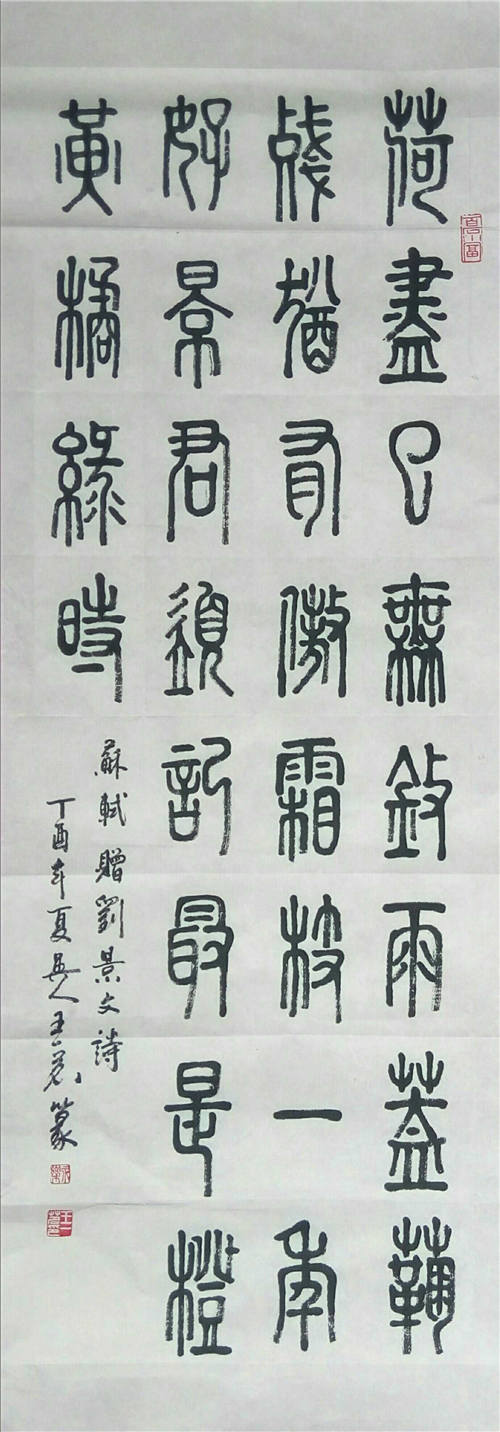 荷盡已無擎雨蓋菊
殘猶有傲霜枝一年
好景君須記最是橙
黃橘綠時
蘇軾贈劉景文詩
丁酉年夏吳人王篆